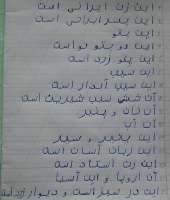 این زن ایرانی است
این پسر ایرانی است
این پتو
این دو پتو نو است
این پتو زرد است
این سیب
این سیب آبدار است
آن سیب شیرین است
آن نان و پنیر
آن آب
این پنیر و سیر
این زبان آسان است
این زن استاد است
آن اروپا و این آسیا
این در سبز است و دیوار زرد است